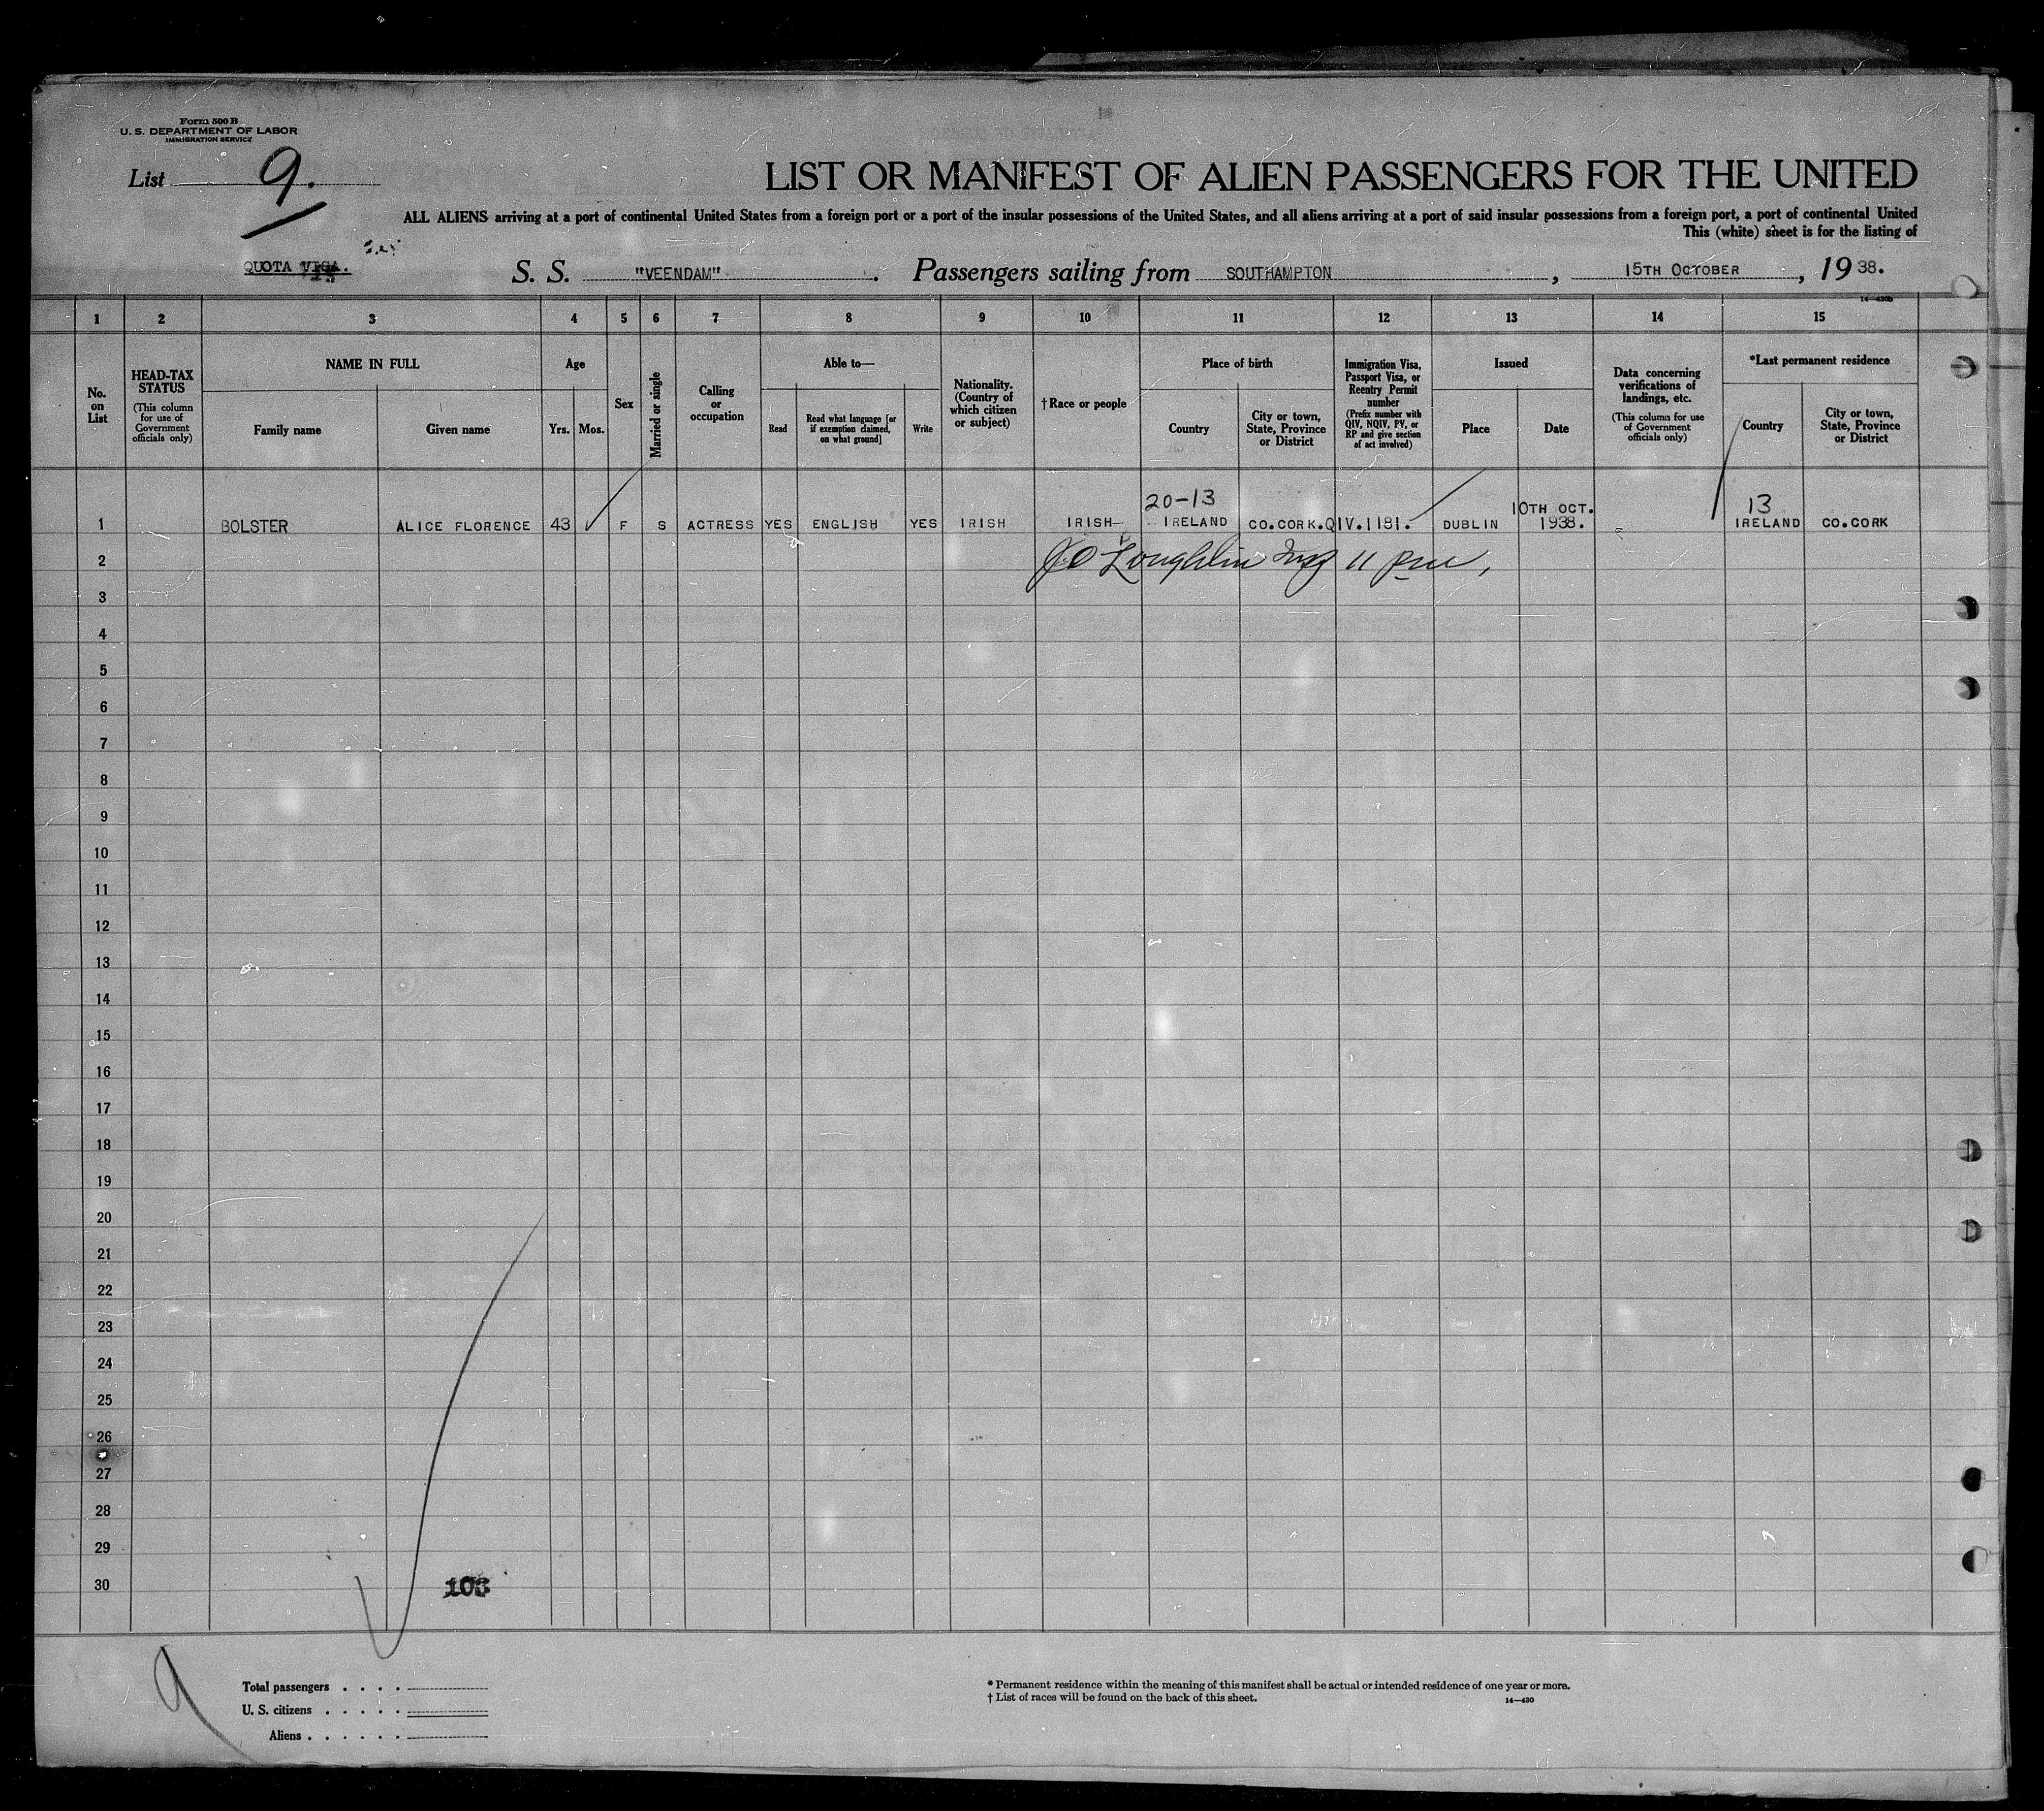 Form 500 B
U. S. DEPARTMENT OF LABOR
IMMIGRATION SERVICE
List 9.
LIST OR MANIFEST OF ALIEN PASSENGERS FOR THE UNITED
ALL ALIENS arriving at a port of continental United States from a foreign port or a port of the insular possessions of the United States, and all aliens arriving at a port of said insular possessions from a foreign port, a port of continental United
This (white) sheet is for the listing of
QUOTA VISA.
S. S. "VEENDAM". Passengers sailing from SOUTHAMPTON, 15TH OCTOBER, 1938.
14—430b
1 2 3 4 5 6 7 8 9 10 11 12 13 14 15
No. on List
HEAD-TAX STATUS
(This column for use of Government officials only)
NAME IN FULL
Family name
Given name
Age
Yrs.
Mos.
Sex
Married or single
Calling or occupation
Able to—
Read
Read what language [or if exemption claimed, on what ground]
Write
Nationality. (Country of which citizen or subject)
†Race or people
Place of birth
Country
City or town, State, Province or District
Immigration Visa, Passport Visa, or Reentry Permit number
(Prefix number with QIV, NQIV, PV, or RP and give section of act involved)
Issued
Place
Date
Data concerning verifications of landings, etc.
(This column for use of Government officials only)
*Last permanent residence
Country
City or town, State, Province or District
20-13
10TH OCT.
13
1 BOLSTER ALICE FLORENCE 43 F S ACTRESS YES ENGLISH YES IRISH IRISH IRELAND CO.CORK. QIV.1181. DUBLIN 1938. IRELAND CO.CORK
2 O'Loughlin Insp 11 pm,
3
4
5
6
7
8
9
10
11
12
13
14
15
16
17
18
19
20
21
22
23
24
25
26
27
28
29
30
103
9
Total passengers . . . .
U. S. citizens . . . . .
Aliens . . . . . .
* Permanent residence within the meaning of this manifest shall be actual or intended residence of one year or more.
† List of races will be found on the back of this sheet.
14—430